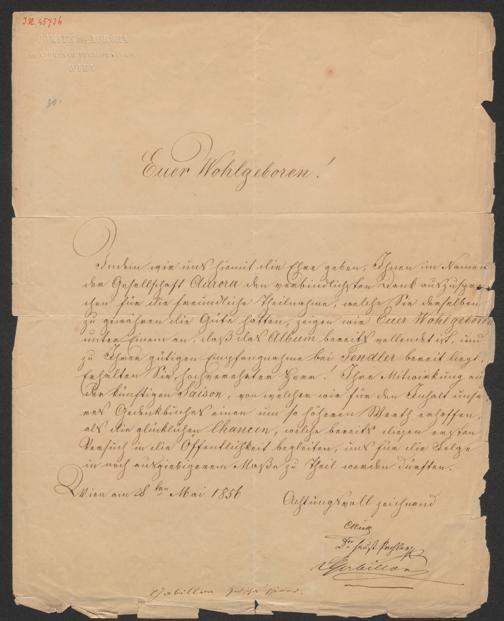 I.N. 45736
WIEN
Euer Wohlgeboren!
Indem wir uns hiemit die Ehre geben, Ihnen im Namen
der Gesellschaft Aurora den verbindlichsten Dank auszuspre-
chen für die freundliche Theilnahme, welche Sie derselben
zu gewähren die Güte hatten, zeigen wir Euer Wohlgeboren
unter Einem an, daß das Album bereits vollendet ist, und
zu Ihrer gütigen Empfangnahme bei Tendler bereit liegt.
Erhalten Sie hochverehrter Herr! Ihre Mitwirkung auch
der künftigen Saison, von welcher wir für den Inhalt unse-
res Gedenkbuches einen um so höheren Werth erhoffen,
als die glücklichen Chancen, welche bereits diesen ersten
Versuch in die Öffentlichkeit begleiten, uns für die Folge
in noch ausgiebigerem Maße zu Theil werden dürften.
Wien am 8ten Mai 1856
Achtungsvoll zeichnend
Dr. Faust Pachler
Gerbillon